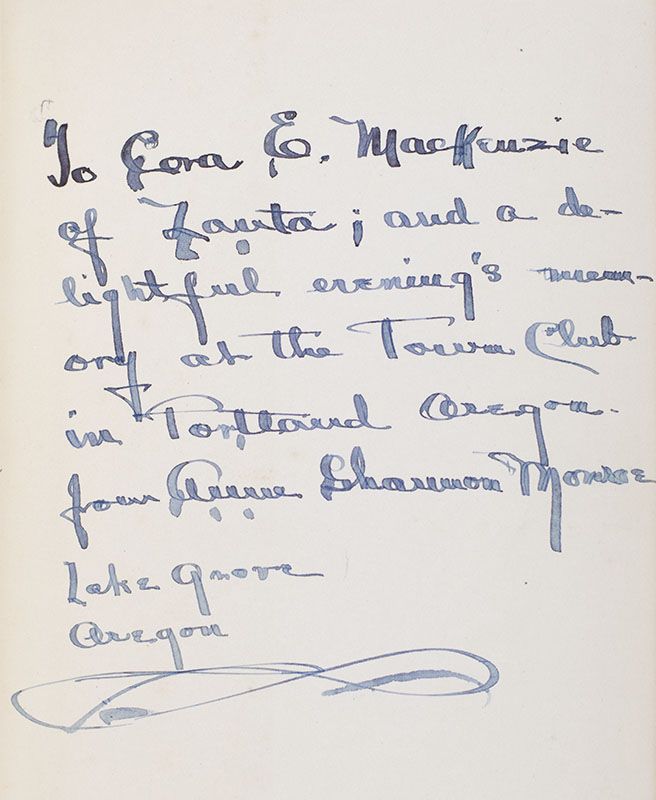 To Cora E. MacKenzie
of Zonta; and a de-
lightful evening's mem-
ory at the Town Club
in Portland Oregon.
from Anne Shannon Monroe
Lake Grove
Oregon